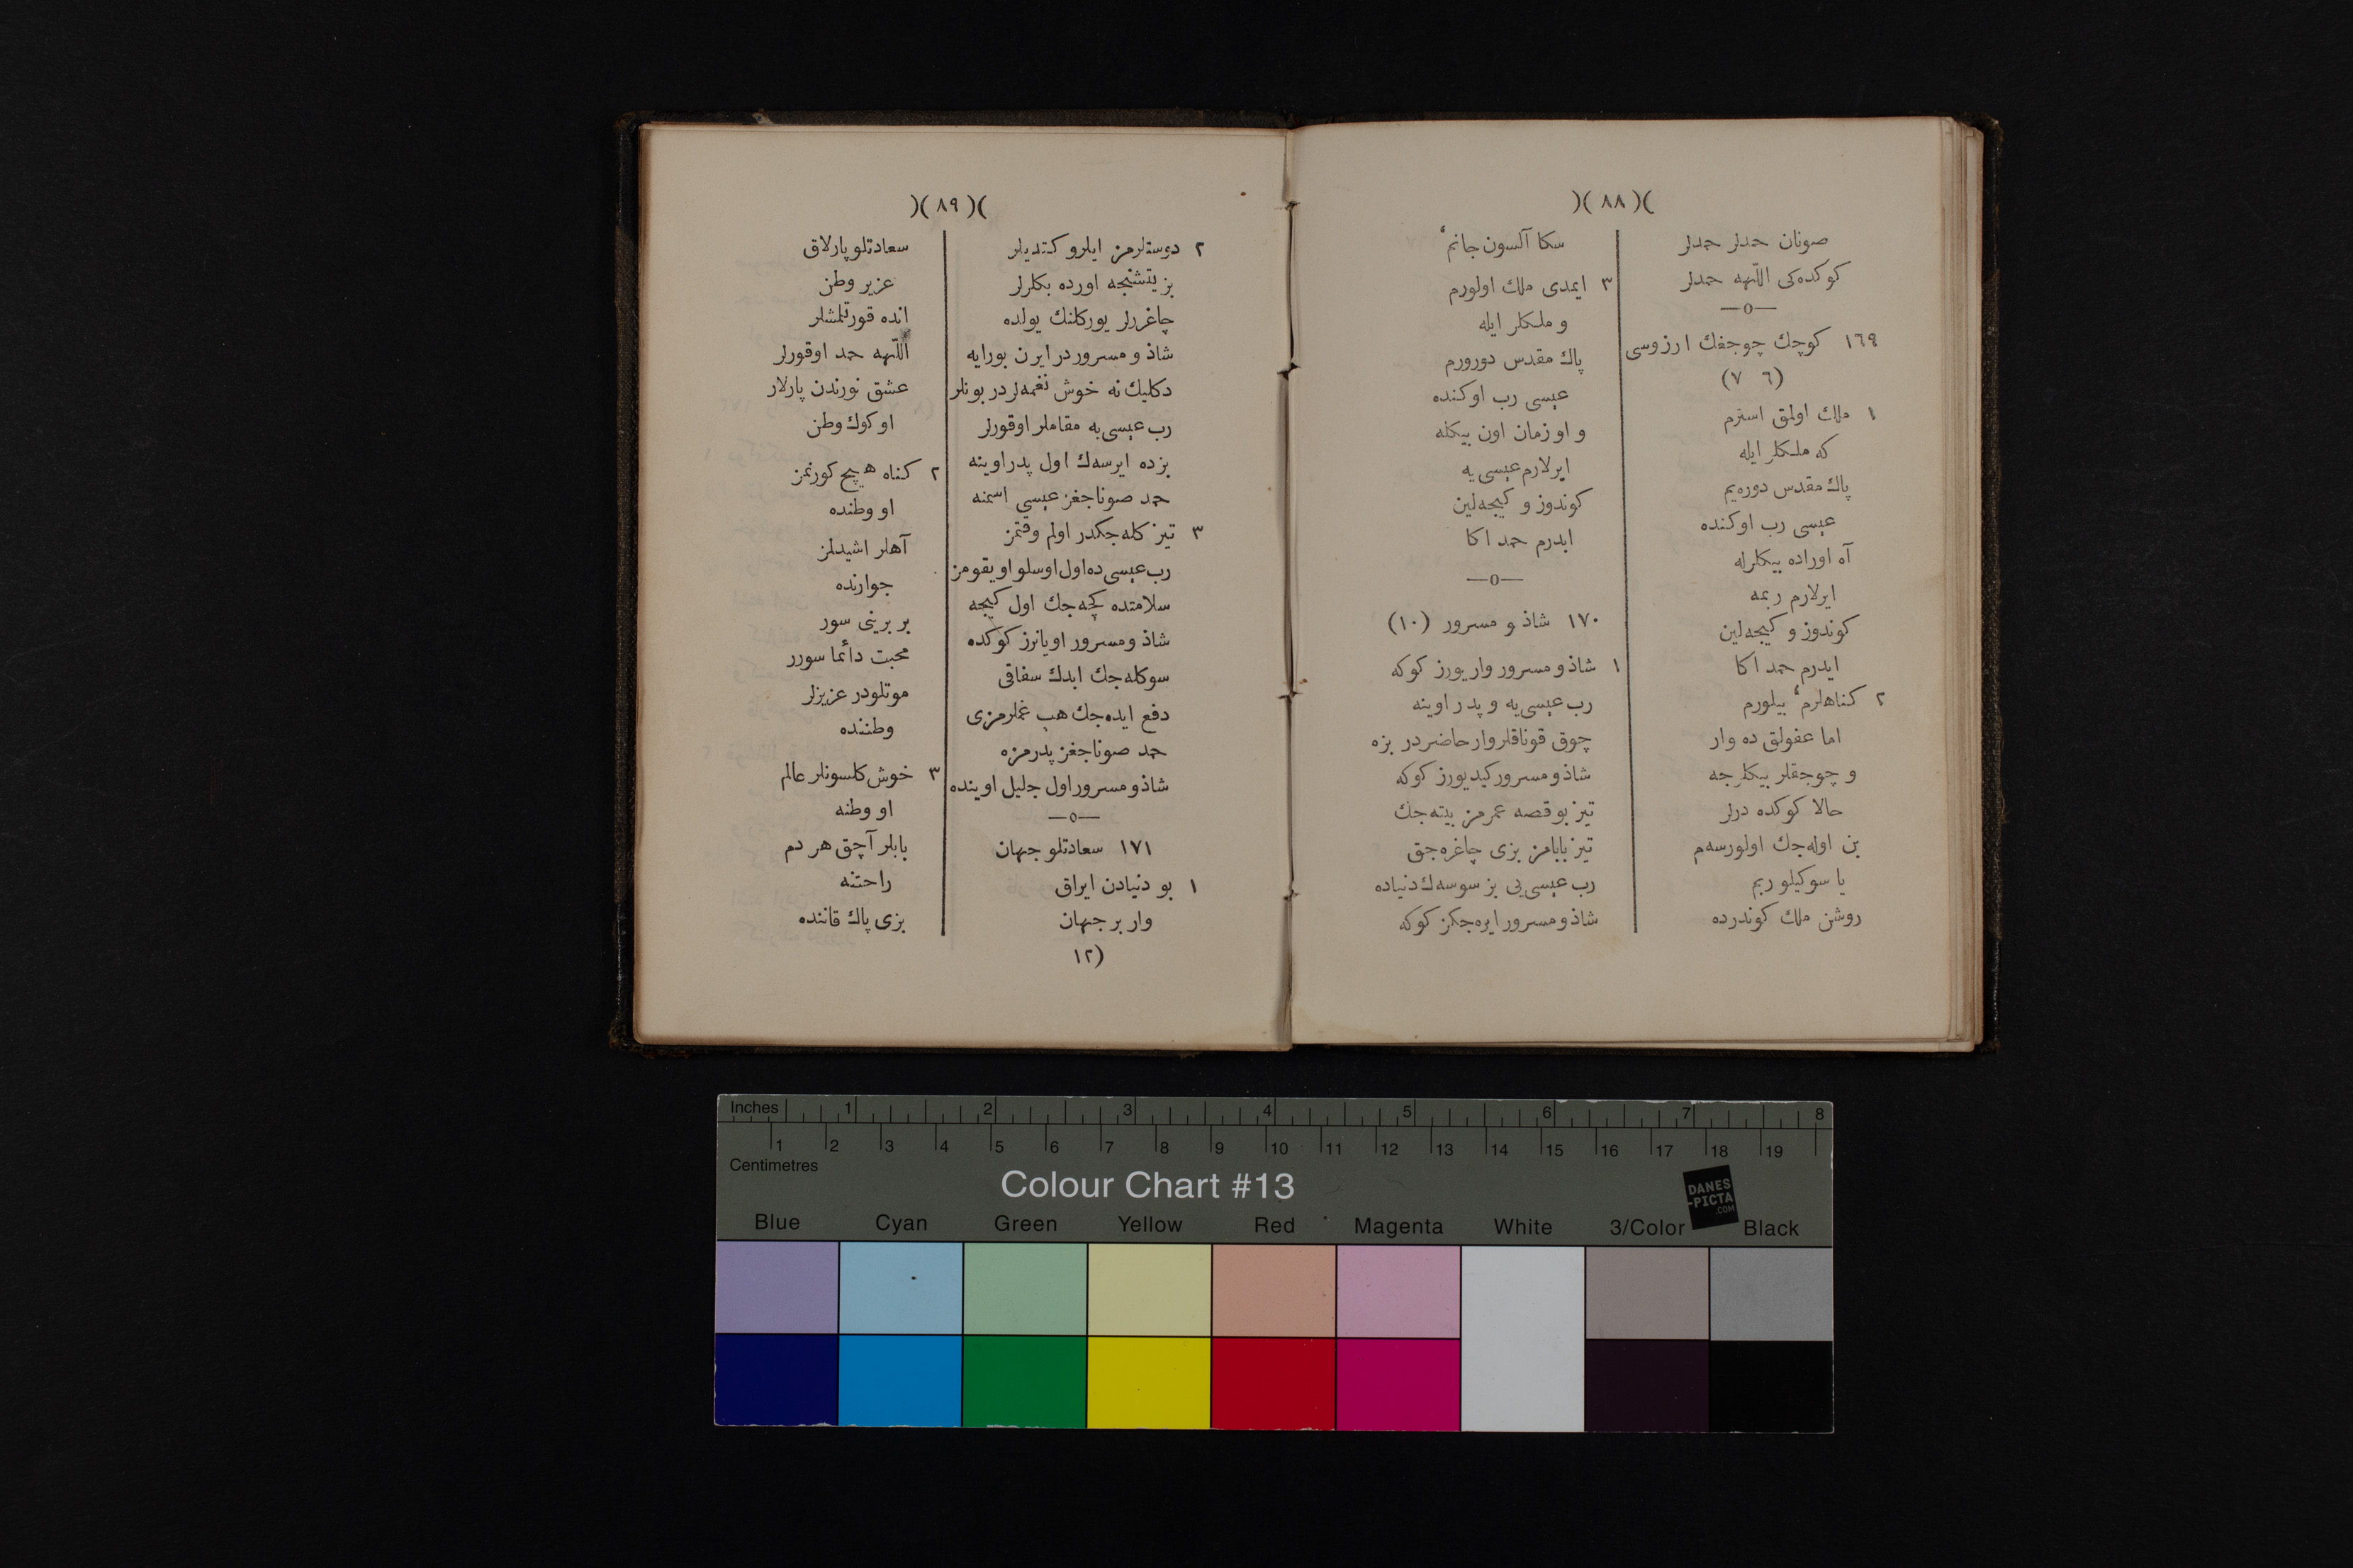 )( ٨٨ )(
صونان حمدلر حمدلر
كوكده‌كى اللّهه حمدلر
—o—
١٦٩ كوچك چوجغك ارزوسى
(٦ ٧)
١ ملك اولمق استرم
كه ملكلر ايله
پاك مقدس دوره‌يم
عيسى رب اوكنده
آه اوراده بيكلرله
ايرلارم ربمه
كوندوز و كيجه‌لين
ايدرم حمد اكا
٢ كناهلرم بيلورم
اما عفولق ده وار
و چوجقلر بيكلرجه
حالا كوكده درلر
بن اوله‌جك اولورسه‌م
يا سوكيلو ربم
روشن ملك كوندرده
سكا آلسون جانم
٣ ايمدى ملك اولورم
و ملكلر ايله
پاك مقدس دورورم
عيسى رب اوكنده
و او زمان اون بيكله
ايرلارم عيسى يه
كوندوز و كيجه‌لين
ايدرم حمد اكا
—o—
١٧٠ شاذ و مسرور (١٠)
١ شاذ و مسرور واريورز كوكه
رب عيسى‌يه و پدر اوينه
چوق قوناقلر وار حاضر در بزه
شاذ و مسرور كيديورز كوكه
تيز بو قصه عمرمز بيته‌جك
تيز بابامز بزى چاغره‌جق
رب عيسى‌يى بز سوسه‌ك دنياده
شاذ و مسرور ايره‌جكز كوكه
)( ٨٩ )(
٢ دوستلرمز ايلرو كتديلر
بز يتشنجه اورده بكلرلر
چاغررلر يوركلنك يولده
شاذ و مسرور در ايرن بورايه
دكليك نه خوش نغمه‌لر در بونلر
رب عيسى‌يه مقاملر اوقورلر
بزده ايرسه‌ك اول پدر اوينه
حمد صوناجغز عيسى اسمنه
٣ تيز كله‌جكدر اولم وقتمز
رب عيسى ده اول اوسلو اويقومز
سلامتده كچه‌جك اول كيجه
شاذ و مسرور اويانرز كوكده
سوكله‌جك ابدك سفاقى
دفع ايده‌جك هپ غملرمزى
حمد صوناجغز پدرمزه
شاذ و مسرور اول جليل اوينده
—o—
١٧١ سعادتلو جهان
١ بو دنيادن ايراق
وار بر جهان
سعادتلو پارلاق
عزيز وطن
انده قورتلمشلر
اللّهه حمد اوقورلر
عشق نورندن پارلار
او كوك وطن
٢ كناه هيچ كورنمز
او وطنده
آهلر اشيدلمز
جوارنده
بر برينى سور
محبت دائما سورر
موتلودر عزيزلر
وطننده
٣ خوش كلسونلر عالم
او وطنه
بابلر آچق هر دم
راحتنه
بزى پاك قاننده
(١٢
Inches 1 2 3 4 5 6 7 8
1 2 3 4 5 6 7 8 9 10 11 12 13 14 15 16 17 18 19
Centimetres
Colour Chart #13
DANES
-PICTA
.COM
Blue Cyan Green Yellow Red Magenta White 3/Color Black